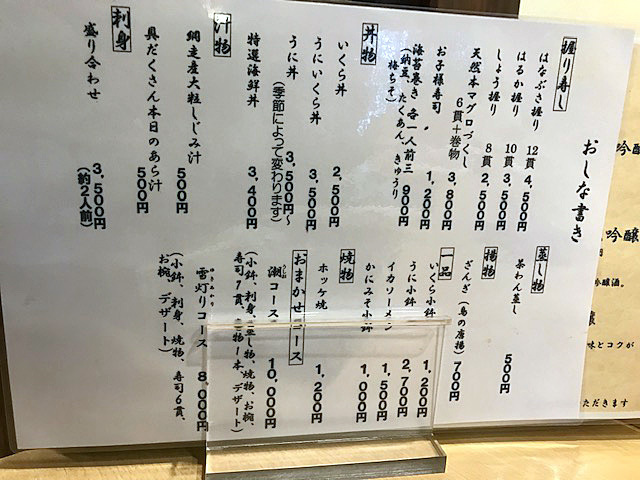 おしな書き
握り寿し
はなぶさ握り 12貫 4,500円
はるか握り 10貫 3,500円
しょう握り 8貫 2,500円
天然本マグロづくし
6貫+巻物 3,800円
お子様寿司 1,200円
海苔巻き 各一人前三 900円
(納豆、たくあん、きゅうり
梅ちそ)
丼物
いくら丼 2,500円
うにいくら丼 3,500円
うに丼 3,500円~
(季節によって変わります)
特選海鮮丼 3,400円
汁物
網走産大粒しじみ汁 500円
具だくさん本日のあら汁 500円
刺身
盛り合わせ 3,500円
(約2人前)
蒸し物
茶わん蒸し 500円
揚物
ざんぎ(鳥の唐揚) 700円
一品
いくら小鉢 1,200円
うに小鉢 2,700円
イカソーメン 1,500円
かにみそ小鉢 1,000円
焼物
ホッケ焼 1,200円
おまかせコース
潮コース 10,000円
(小鉢、刺身、蒸し物、焼物、お椀、
寿司7貫、巻物1本、デザート)
雪灯りコース 8,000円
(小鉢、刺身、焼物、寿司6貫、
お椀、デザート)
吟醸
吟醸
吟醸酒。
味とコクが
ただきます